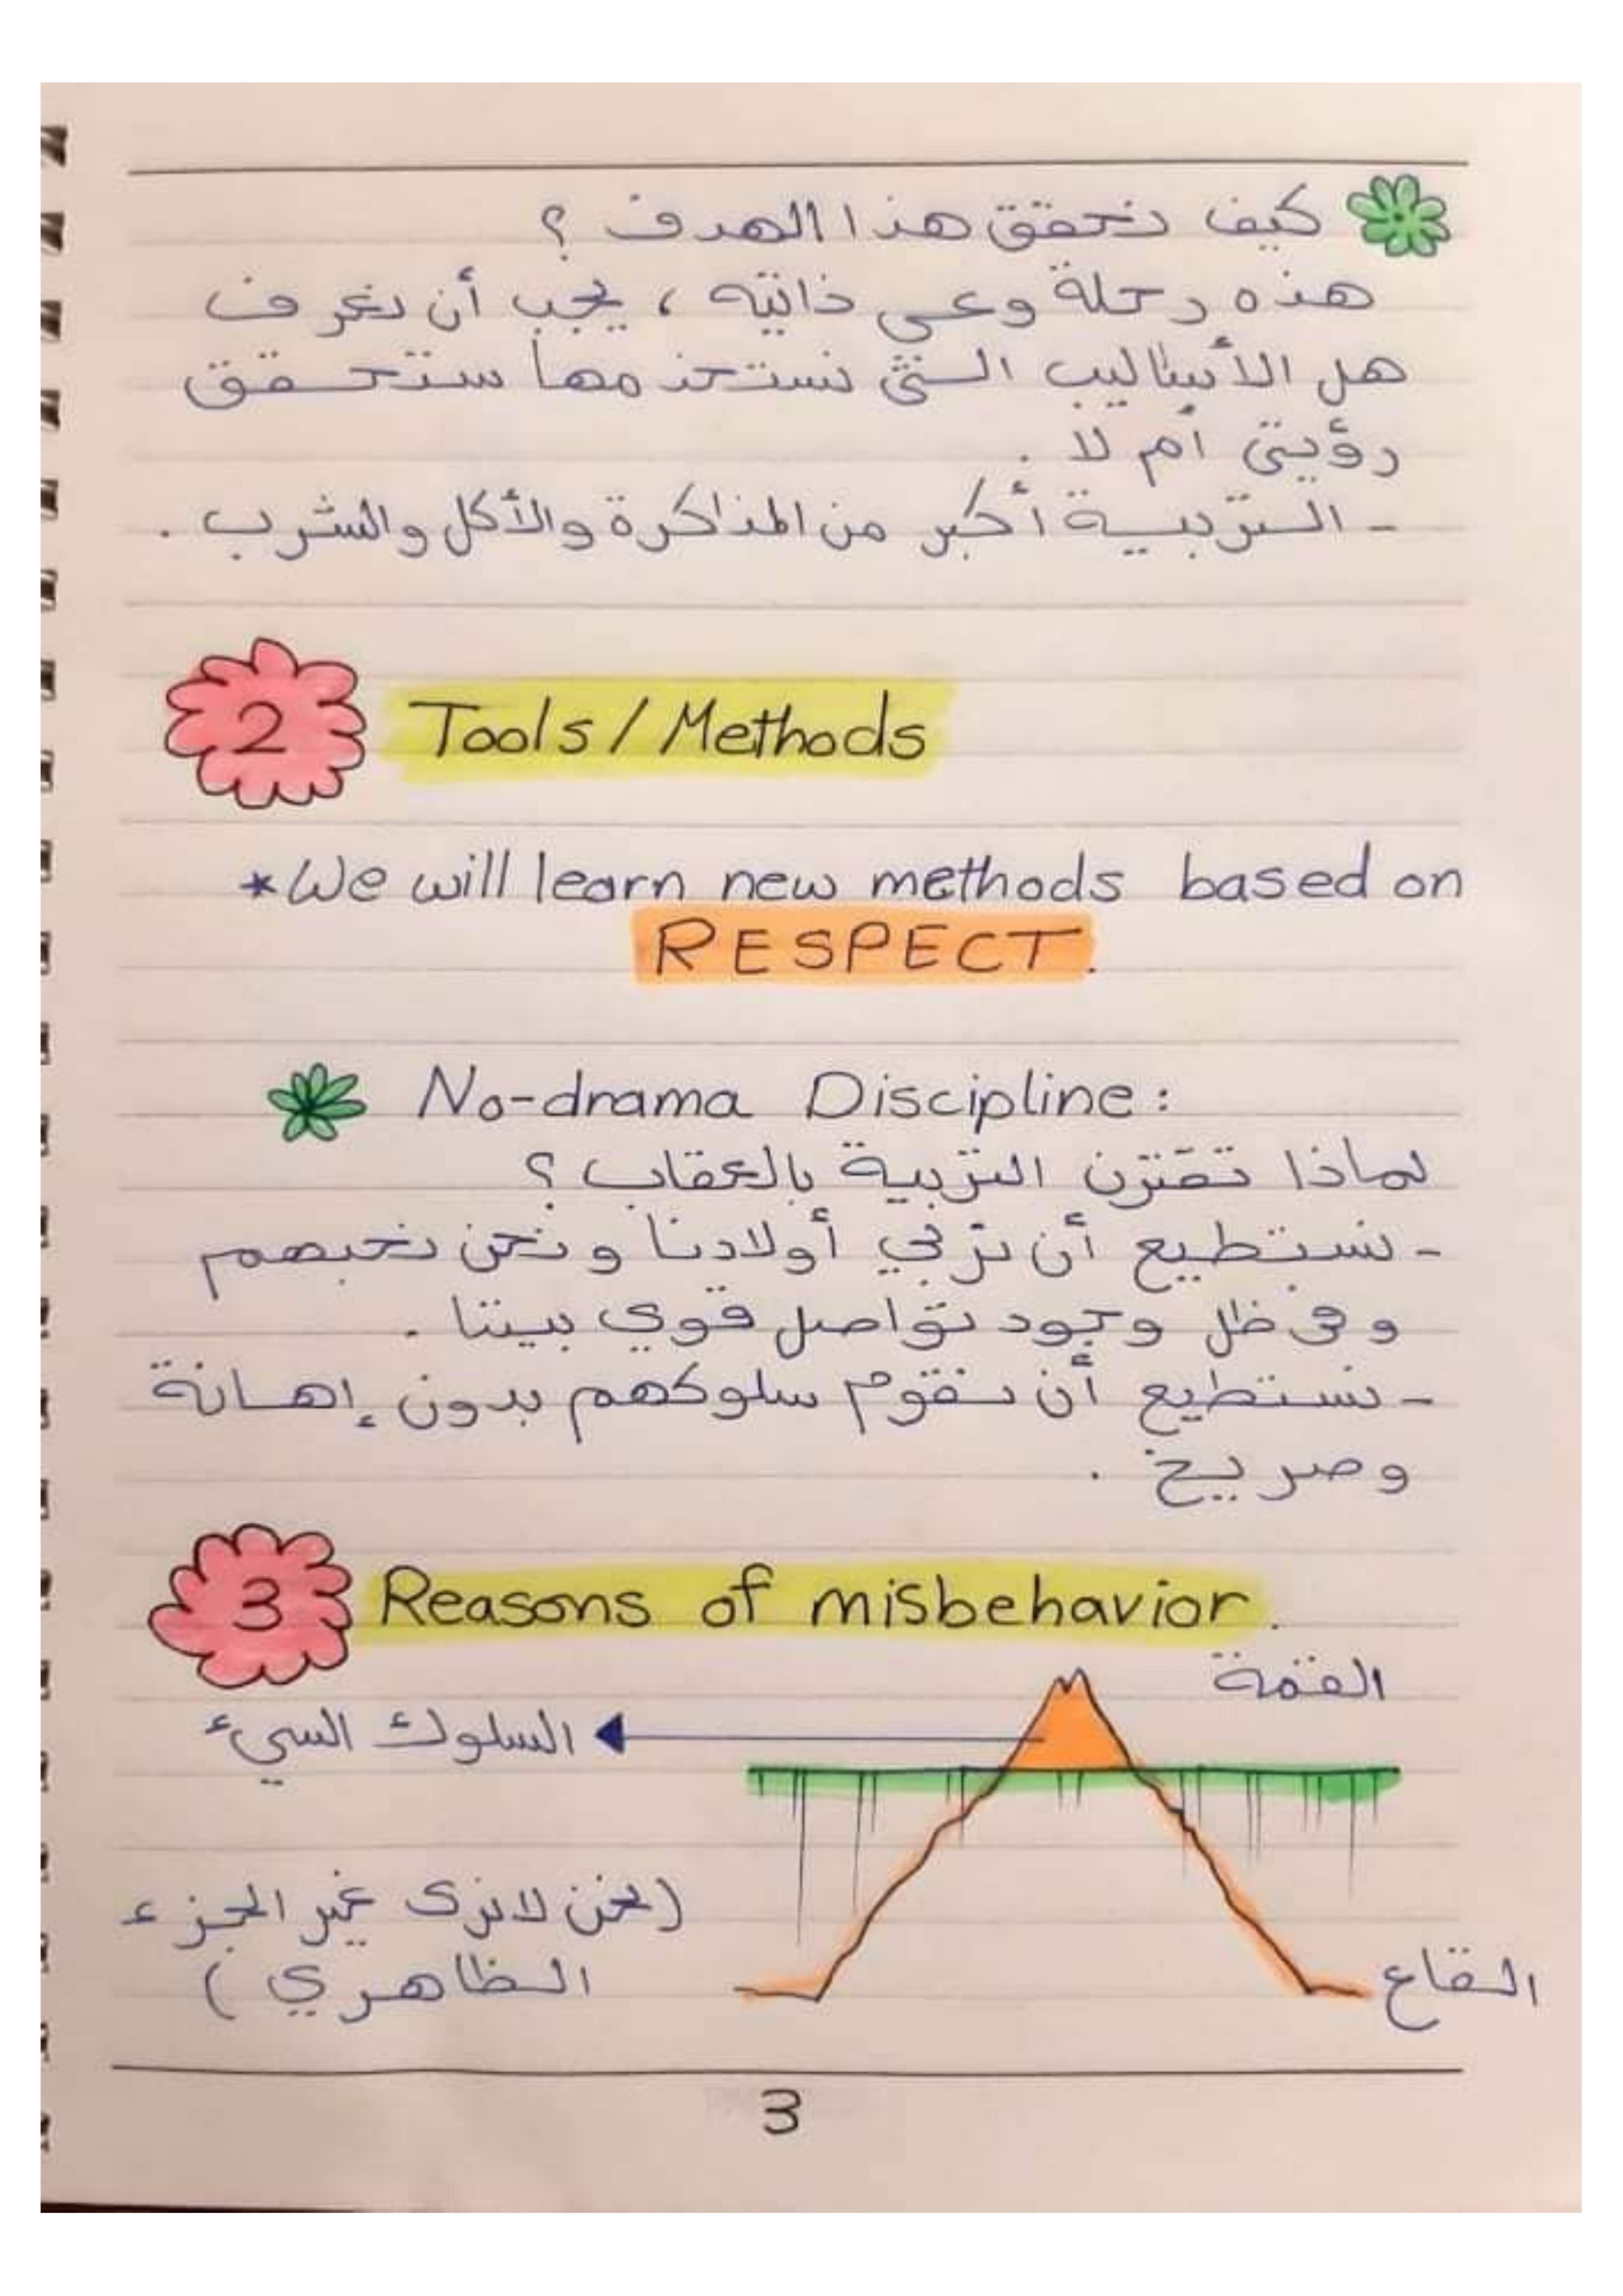 كيف نحقق هذا الهدف ؟
هذه رحلة وعى ذاتيه ، يجب أن نعرف
هل الأساليب التى نستخدمها ستحقق
رؤيتى أم لا .
- التربية أكبر من المذاكرة والأكل والشرب .
2 Tools / Methods
* We will learn new methods based on
RESPECT.
No-drama Discipline :
لماذا تقترن التربية بالعقاب ؟
- نستطيع أن نربي أولادنا و نحن نحبهم
وفى ظل وجود تواصل قوي بيننا .
- نستطيع أن نقوم سلوكهم بدون إهانة
وصريخ .
3 Reasons of misbehavior.
القمة
السلوك السيء
(نحن لا نرى غير الجزء
الظاهري )
القاع
3